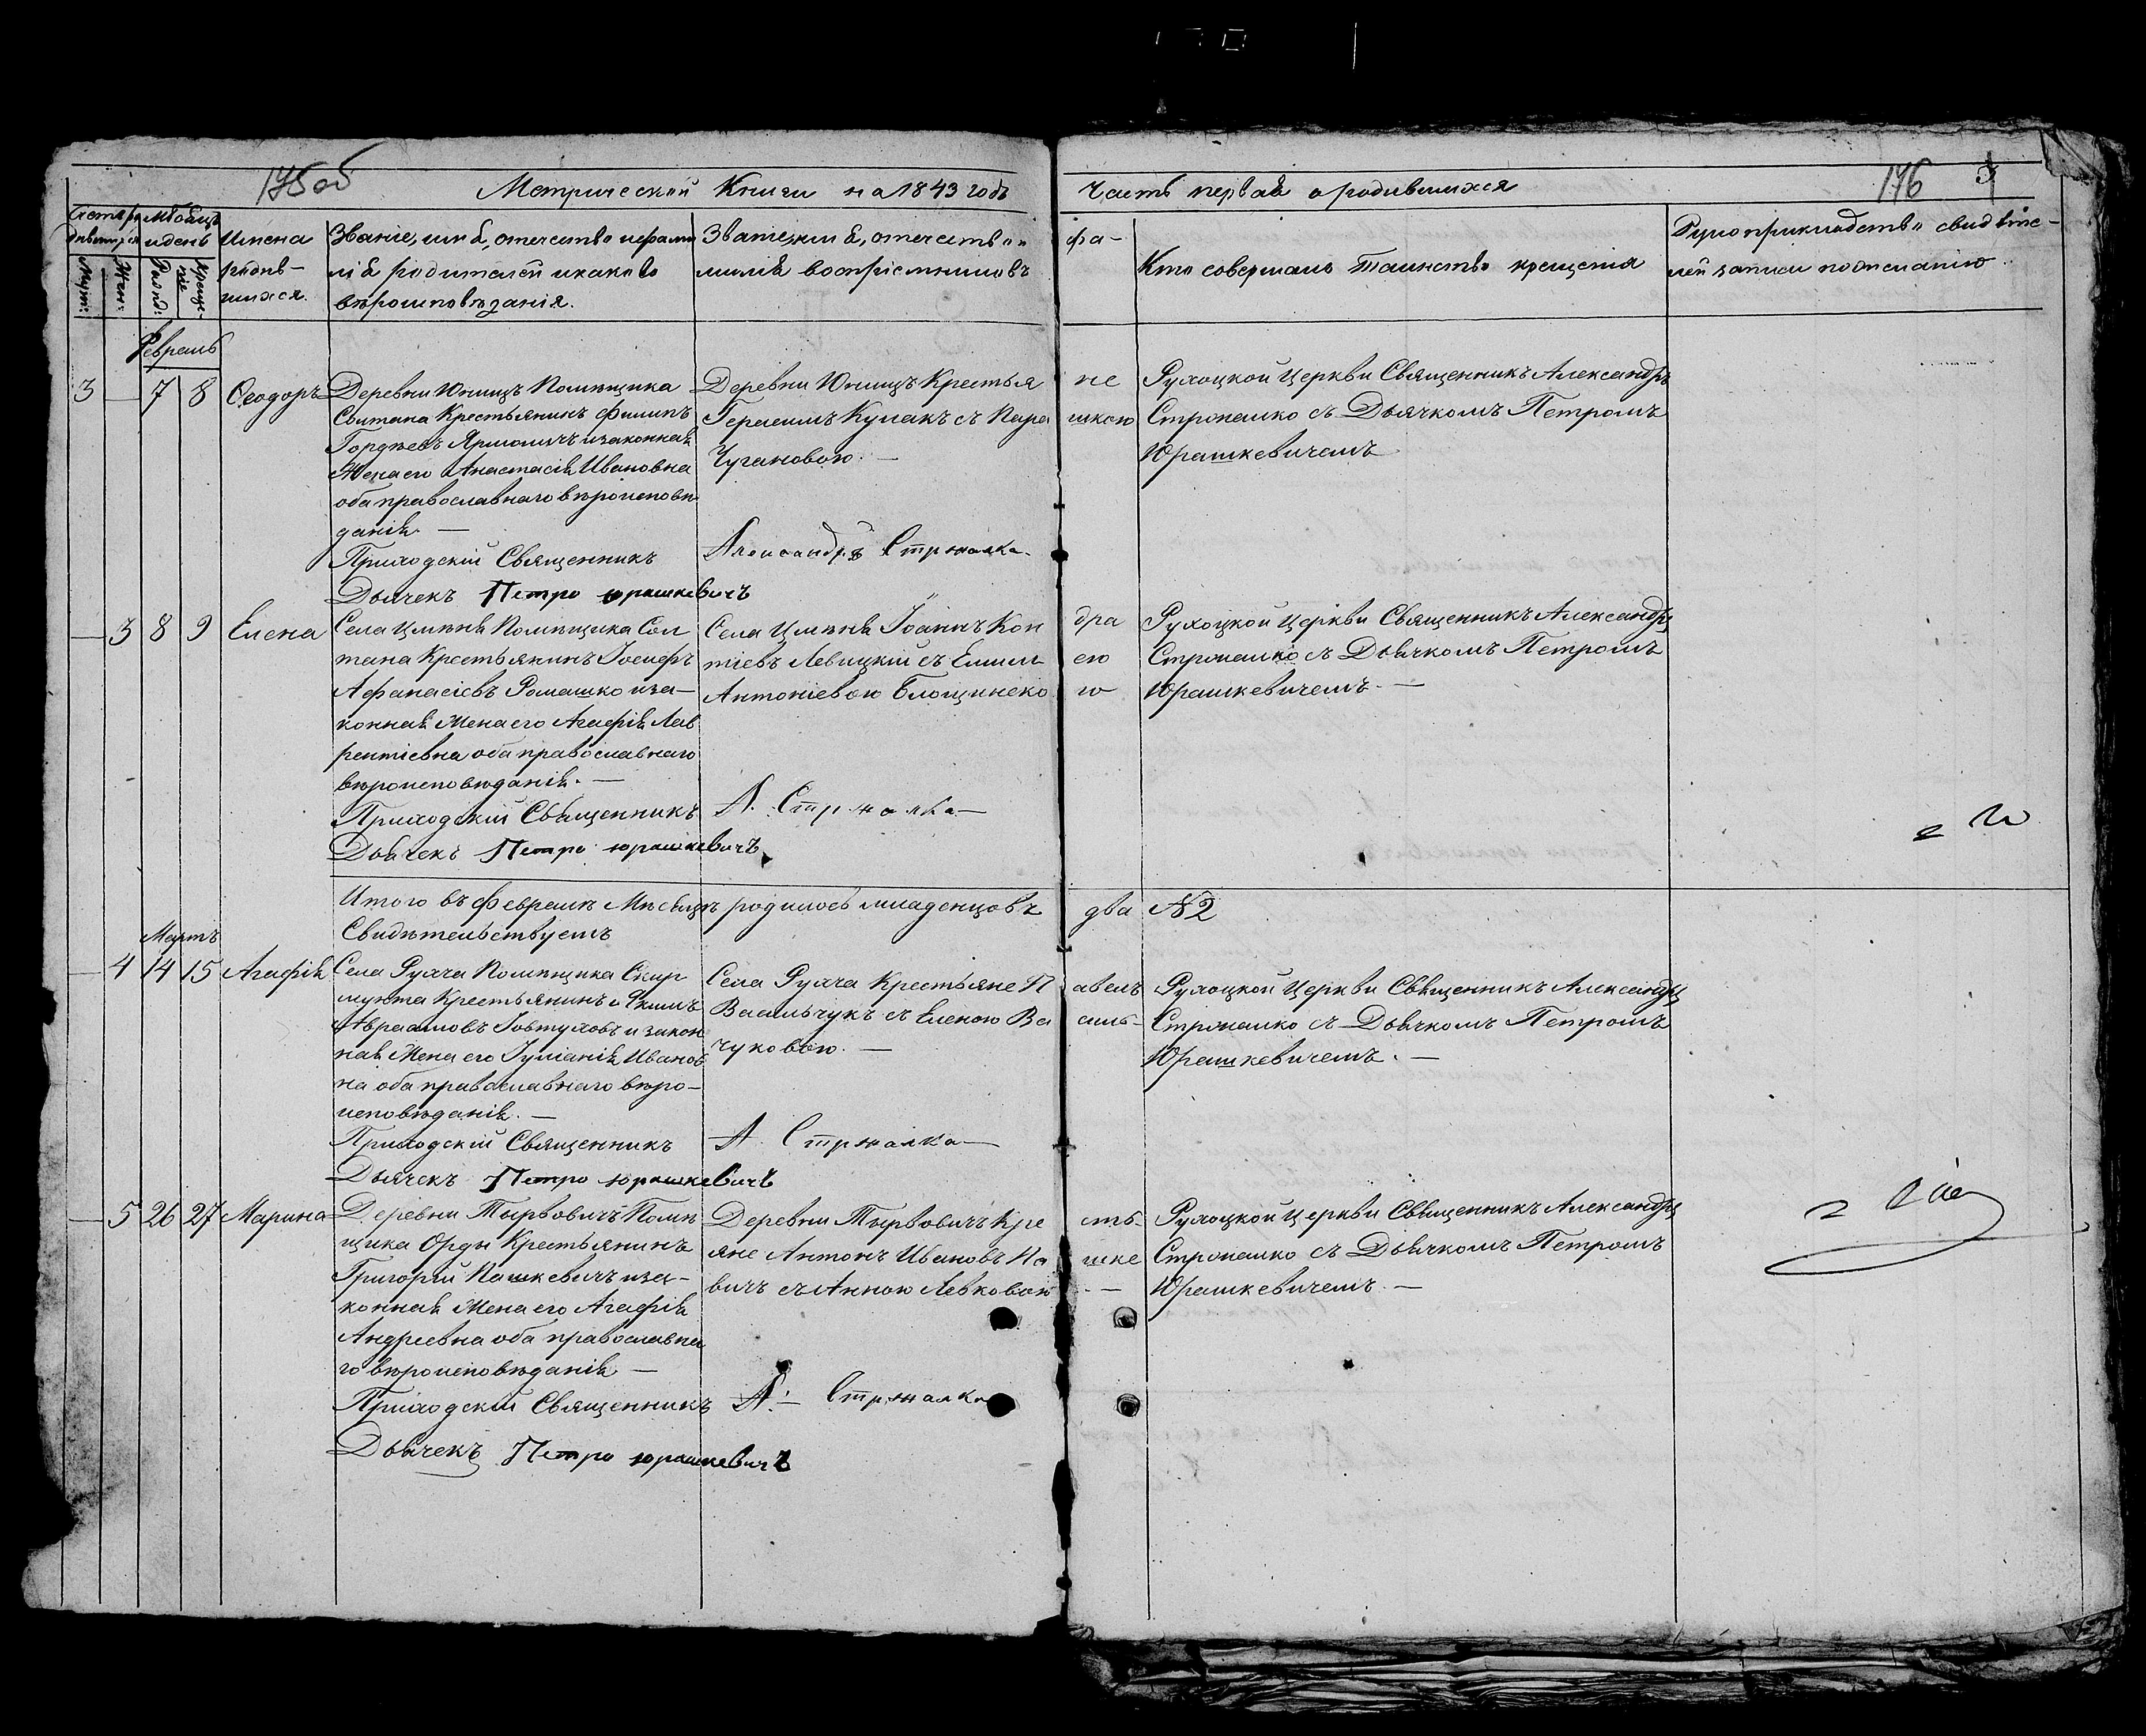 175 об
176 3
Метрической Книги на 1843 годъ Часть первая о родившихся
Мѣсяцъ
и день
Муж: Жен: Рожд: Креще-
ніе
Имена
родив-
шихся.
Званіе, имя, отечество и фами
лія родителей и какого
вѣроисповѣданія.
Званіе, имя, отечество и фа-
милія воспріемниковъ
Кто совершалъ Таинство крещенія
Рукоприкладство свидѣте-
лей записи по желанію
Февраль
3 — 7 8 Ѳеодоръ
Деревни Юницъ Помѣщика
Солтана Крестьянинъ Филипъ
Гордѣевъ Ярмоличъ и законная
Жена его Анастасія Ивановна
оба православнаго вѣроисповѣ
данія. —
Приходскій Священникъ Александръ Стржалка.
Дьячекъ Петро Юрашкевичъ
Деревни Юницъ Крестья не
Герасимъ Кулакъ съ Пара шкою
Чугановою. —
Рухоцкой Церкви Священникъ Александръ
Стржалко съ Дьячкомъ Петромъ
Юрашкевичемъ
— 3 8 9 Елена
Села Цмѣня Помѣщика Сол
тана Крестьянинъ Іосифъ
Афанасіевъ Ромашко и за-
конная Жена его Агафія Лав
рентіевна оба православнаго
вѣроисповѣданія. —
Приходскій Священникъ А. Стржалка —
Дьячекъ Петро Юрашкевичъ
Села Цмѣня Іоаннъ Кон дра
тіевъ Левицкій съ Емил ею
Антоніевою Блощинско ю
Рухоцкой Церкви Священникъ Александръ
Стржалко съ Дьячкомъ Петромъ
Юрашкевичемъ. —
Итого въ Февралѣ Мѣсяцѣ родилось младенцовъ два № 2
Свидѣтельствуемъ
Мартъ
— 4 14 15 Агафія
Села Рухча Помѣщика Скир
мунта Крестьянинъ Якимъ
Авраамовъ Ковтуховъ и закон
ная Жена его Іуліанія Иванов
на оба православнаго вѣро-
исповѣданія. —
Приходскій Священникъ А. Стржалка —
Дьячекъ Петро Юрашкевичъ
Села Рухча Крестьяне П авелъ
Васильчукъ съ Еленою Ва силь-
чуковою. —
Рухоцкой Церкви Священникъ Александръ
Стржалко съ Дьячкомъ Петромъ
Юрашкевичемъ. —
— 5 26 27 Марина
Деревни Тырвовичъ Помѣ
щика Орды Крестьянинъ
Григорій Пашкевичъ и за-
конная Жена его Агафія
Андреевна оба православна
го вѣроисповѣданія —
Приходскій Священникъ А. — Стржалка
Дьячекъ Петро Юрашкевичъ
Деревни Тырвовичъ Кре сть-
яне Антонъ Ивановъ Па шке
вичъ съ Анною Левковою. —
Рухоцкой Церкви Священникъ Александръ
Стржалко съ Дьячкомъ Петромъ
Юрашкевичемъ. —